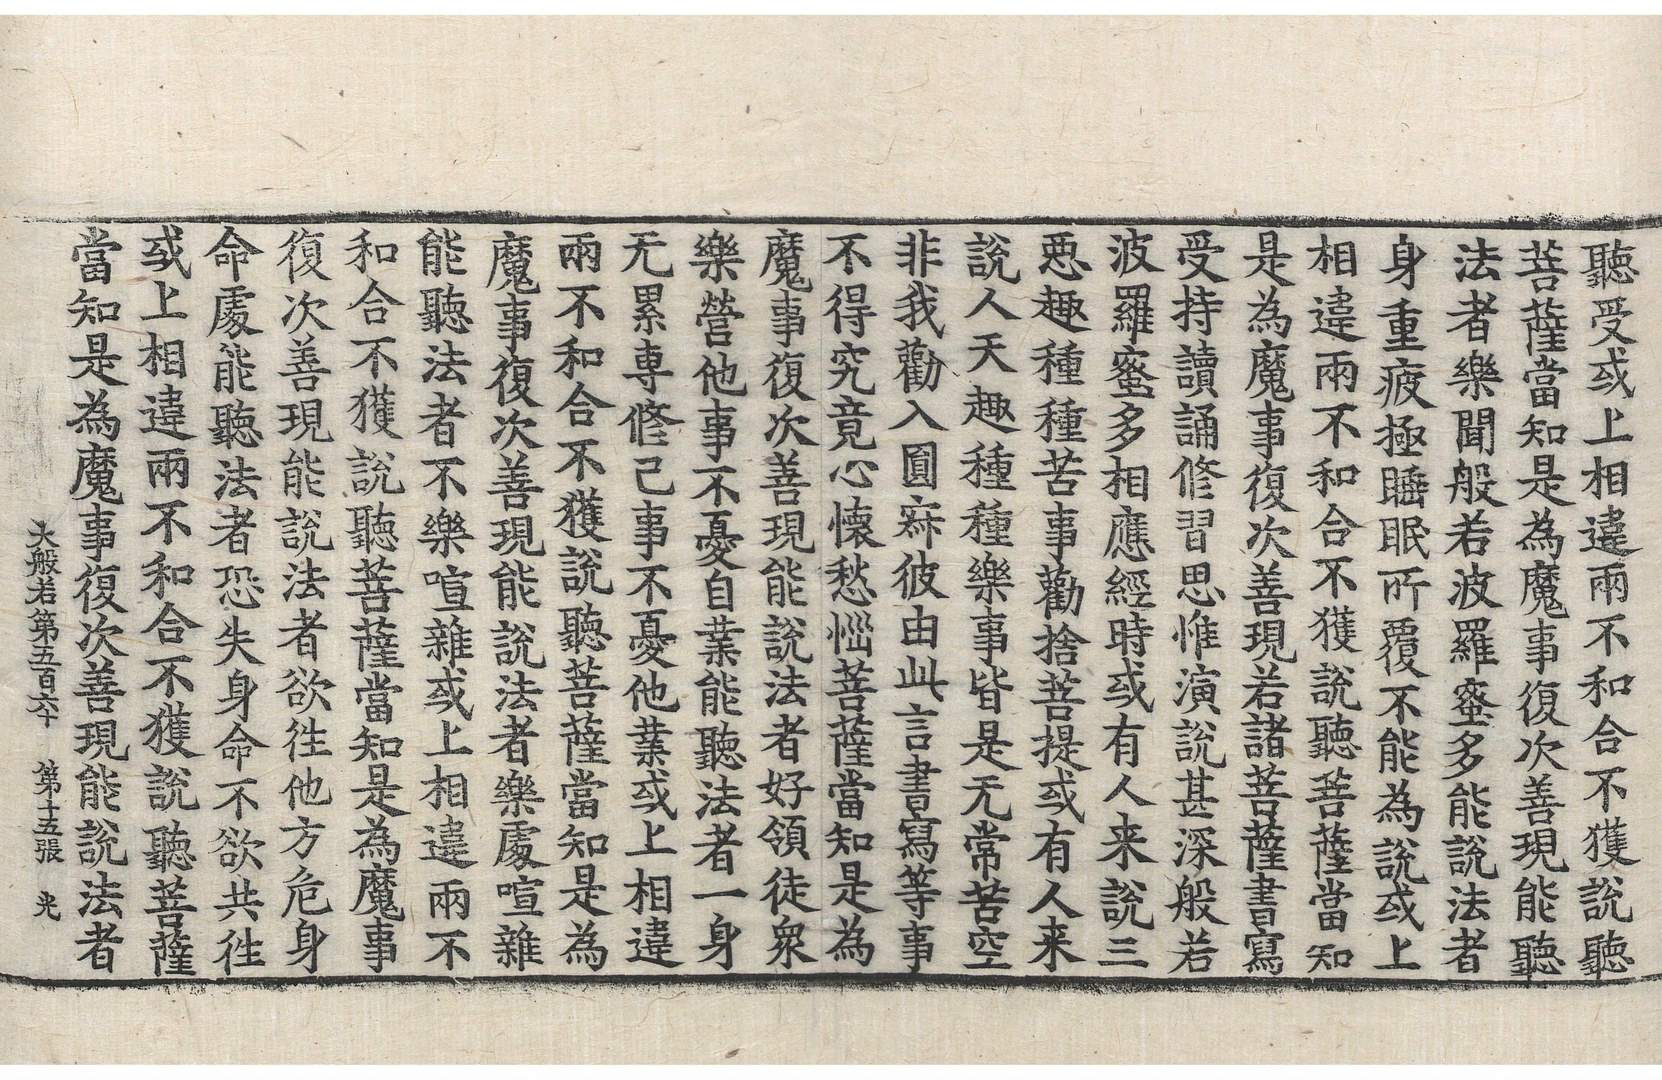 聽受或上相違兩不和合不獲說聽
菩薩當知是為魔事復次善現能聽
法者樂聞般若波羅蜜多能說法者
身重疲極睡眠所覆不能為說或上
相違兩不和合不獲說聽菩薩當知
是為魔事復次善現若諸菩薩書寫
受持讀誦修習思惟演說甚深般若
波羅蜜多相應經時或有人来說三
惡趣種種苦事勸捨菩提或有人来
說人天趣種種樂事皆是无常苦空
非我勸入圓寂彼由此言書寫等事
不得究竟心懷愁惱菩薩當知是為
魔事復次善現能說法者好領徒衆
樂營他事不憂自業能聽法者一身
无累專修己事不憂他業或上相違
兩不和合不獲說聽菩薩當知是為
魔事復次善現能說法者樂處喧雜
能聽法者不樂喧雜或上相違兩不
和合不獲說聽菩薩當知是為魔事
復次善現能說法者欲往他方危身
命處能聽法者恐失身命不欲共往
或上相違兩不和合不獲說聽菩薩
當知是為魔事復次善現能說法者
大般若第五百六十 第十五張 光